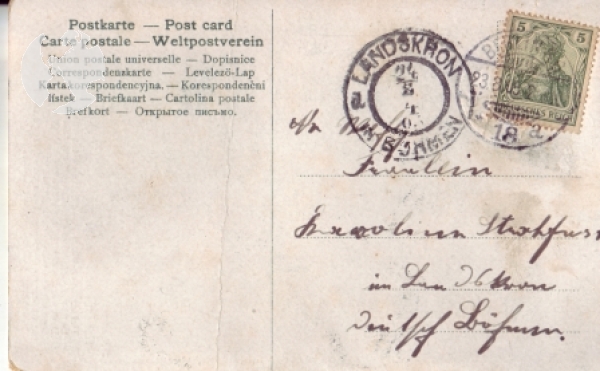 Postkarte — Post card
Carte postale — Weltpostverein
Union postale universelle — Dopisnice
Correspondenskarte — Levelező-Lap
Karta korespondencyjna. — Korespondenční
lístek — Briefkaart — Cartolina postale
Brefkort — Открытое письмо.
LANDSKRON
IN BÖHMEN
a
5 5
DEUTSCHES REICH
18 a
An
Fräulein
Karolina
in Landskron
deutsch Böhmen.